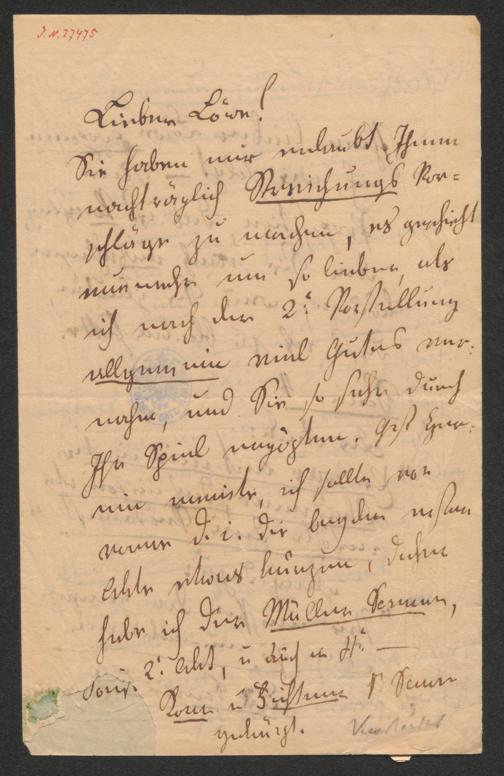 J.N. 27475
Lieber Löwe!
Sie haben mir erlaubt Ihnen
nachträglich Streichungs Vor=
schläge zu machen, es geschieht
nunmehr um so lieber, als
ich nach der 2. Vorstellung
allgemein viel Gutes ver=
nahm, und Sie so sehr durch
Ihr Spiel ergözten.
meinte, ich sollte von
vorne d. i. die beyden ersten
Akte etwas kürzen, daher
habe ich die Müller Scenen,
2. Akt, u auch
u Scene
gekürzt.